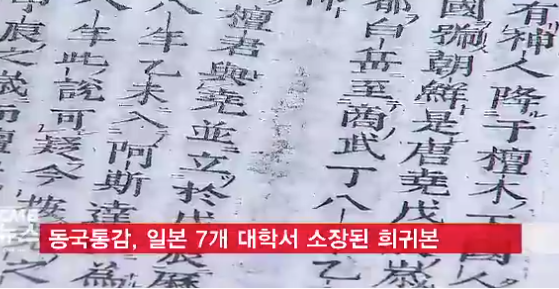 有神人降于檀木下國人
國號朝鮮是唐堯戊
都白岳至商武丁八
乙
檀君與堯並立於
八年乙未入阿斯達
年此說可疑今
辰之歲而檀
之
為
동국통감, 일본 7개 대학서 소장된 희귀본